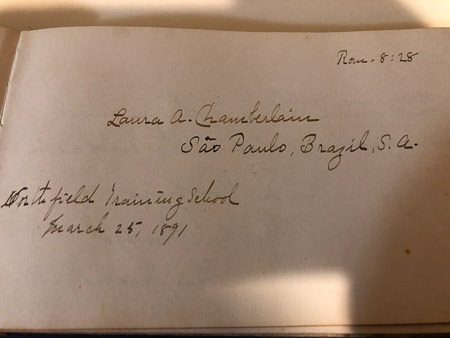 Rom. 8:28
Laura A. Chamberlain
São Paulo, Brazil, S. A.
Northfield Training School
March 25, 1891